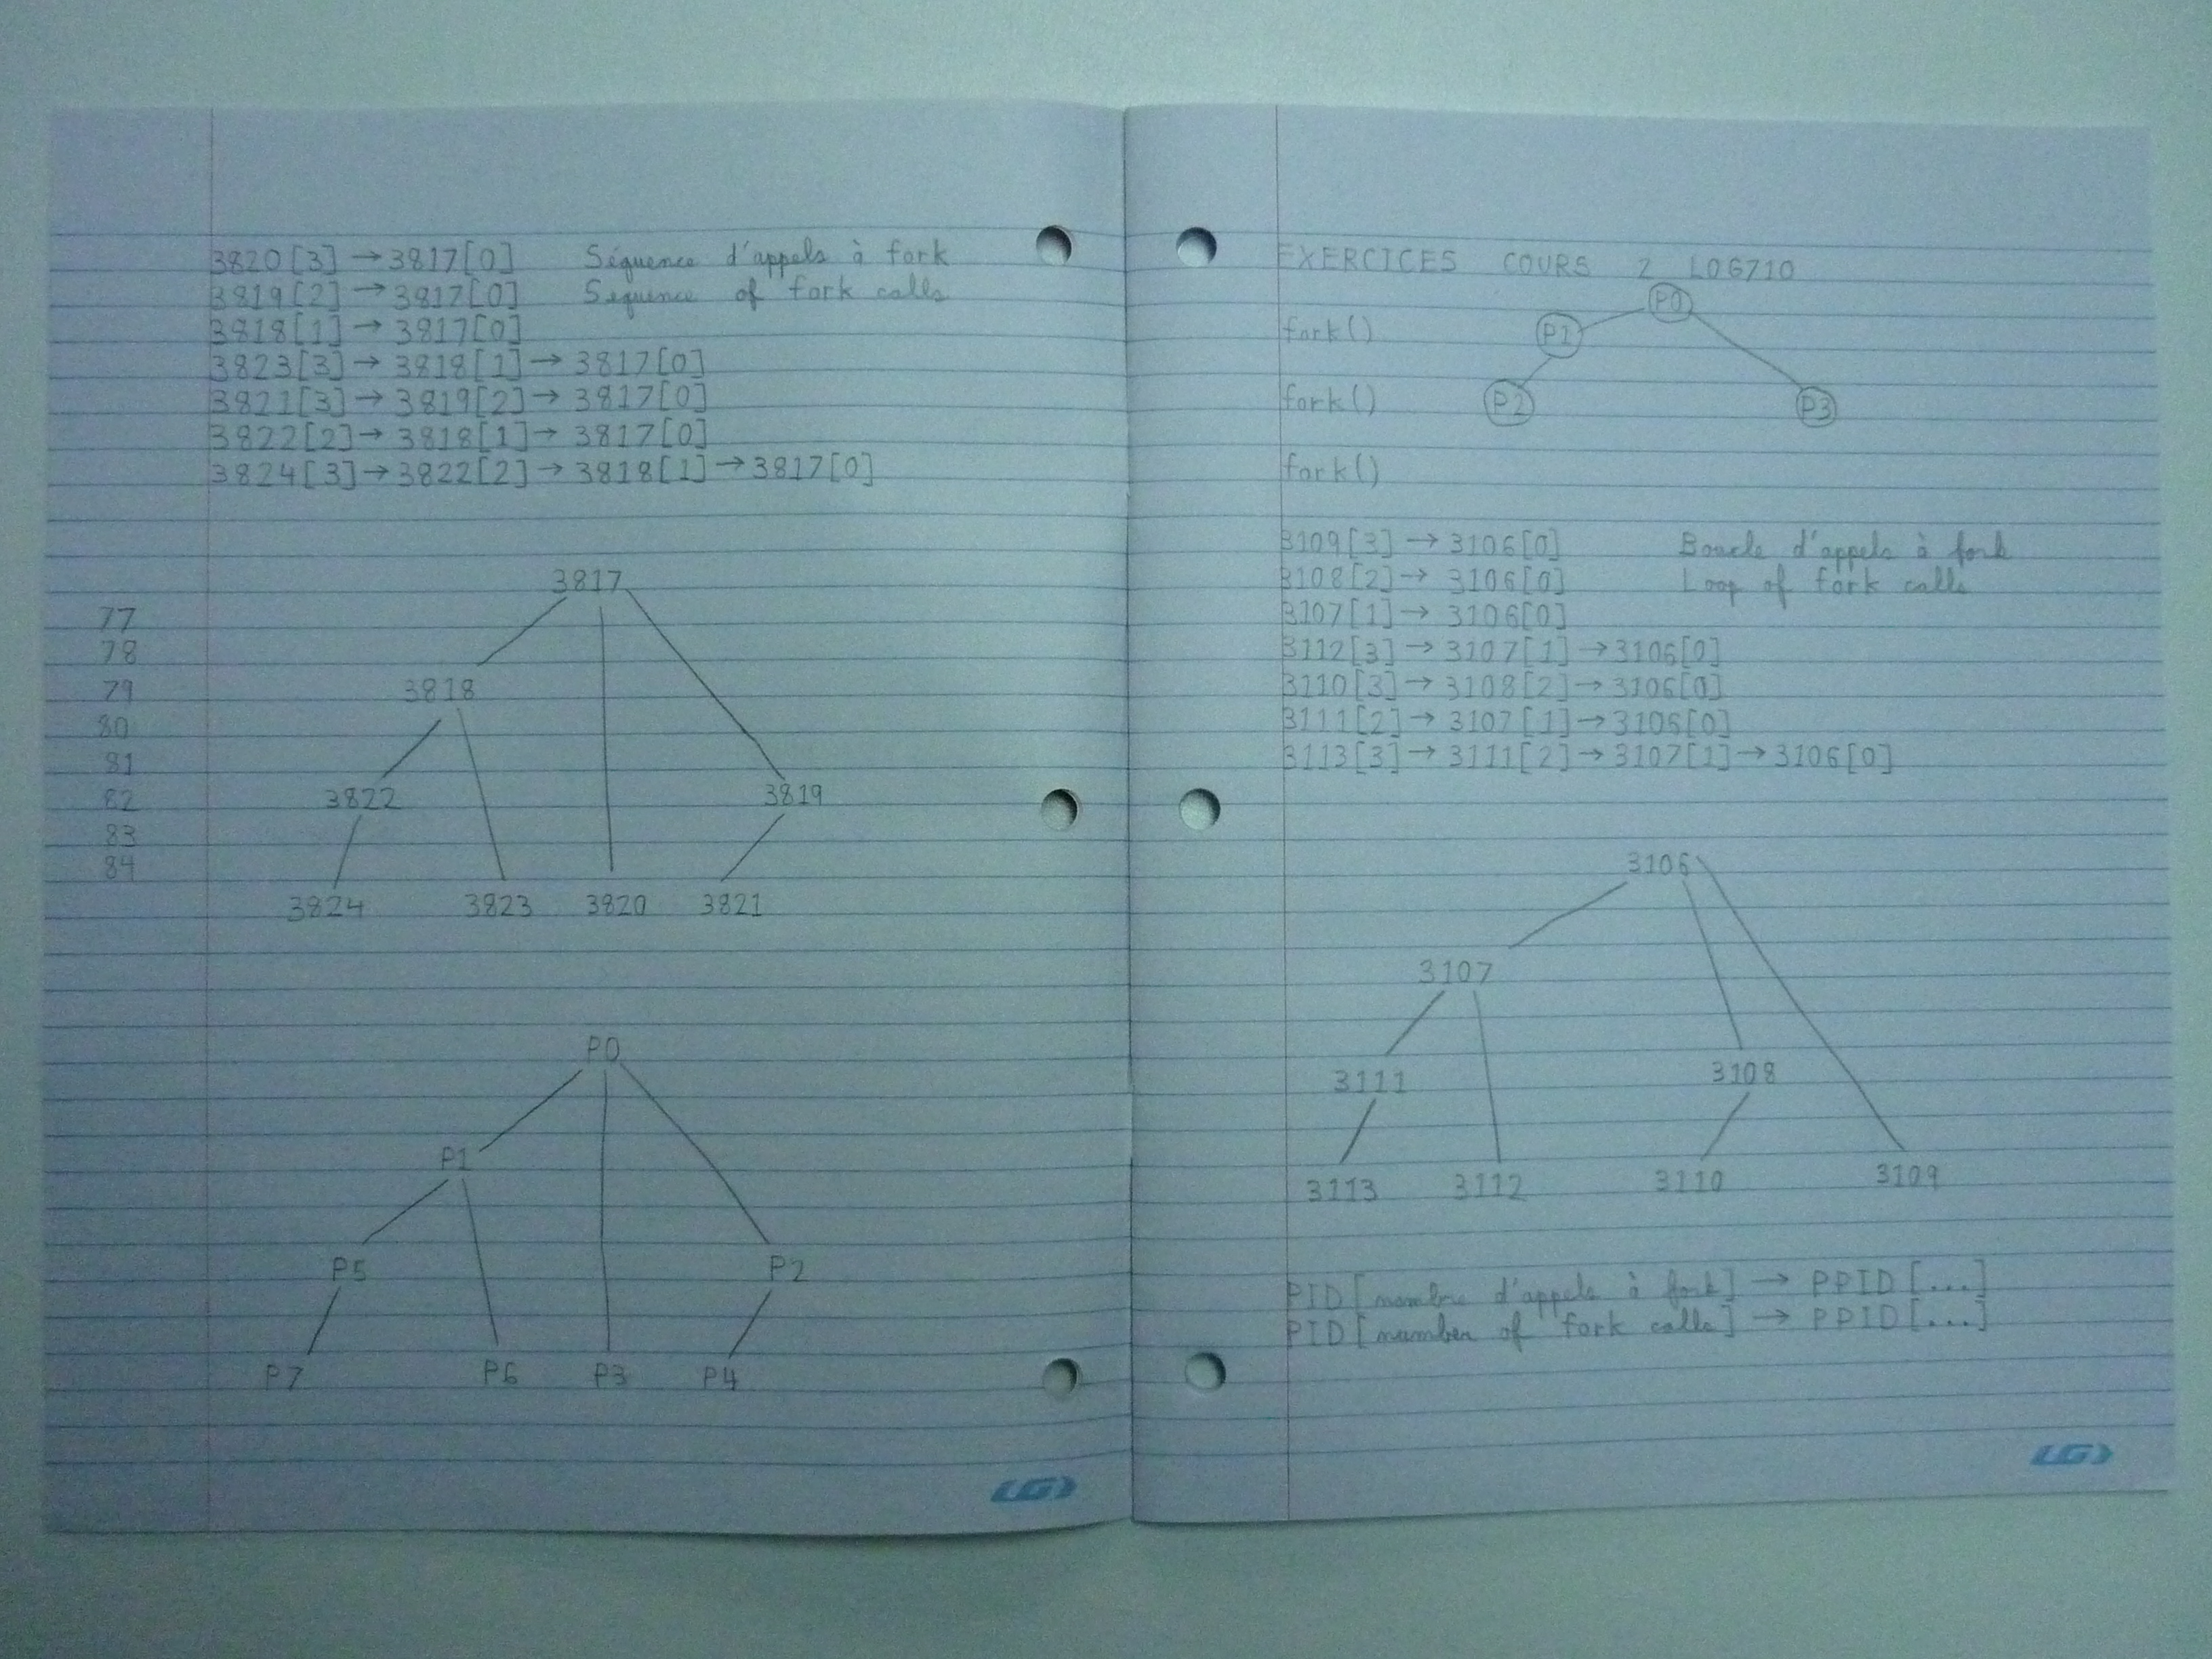 3820[3] → 3817[0] Séquence d'appels à fork
3819[2] → 3817[0] Sequence of fork calls
3818[1] → 3817[0]
3823[3] → 3818[1] → 3817[0]
3821[3] → 3819[2] → 3817[0]
3822[2] → 3818[1] → 3817[0]
3824[3] → 3822[2] → 3818[1] → 3817[0]
3817
77
78
79
80
81
82
83
84
3818
3822 3819
3824 3823 3820 3821
P0
P1
P5 P2
P7 P6 P3 P4
LG
EXERCICES COURS 2 LOG710
P0
fork() P1
fork() P2 P3
fork()
3109[3] → 3106[0] Boucle d'appels à fork
3108[2] → 3106[0] Loop of fork calls
3107[1] → 3106[0]
3112[3] → 3107[1] → 3106[0]
3110[3] → 3108[2] → 3106[0]
3111[2] → 3107[1] → 3106[0]
3113[3] → 3111[2] → 3107[1] → 3106[0]
3106
3107
3111 3108
3113 3112 3110 3109
PID[nombre d'appels à fork] → PPID[...]
PID[number of fork calls] → PPID[...]
LG